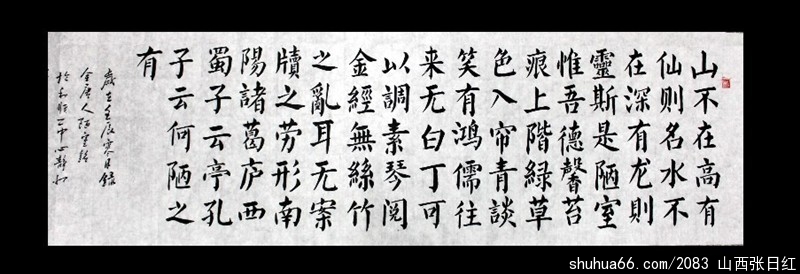 山不在高有
仙则名水不
在深有龙则
靈斯是陋室
惟吾德馨苔
痕上階緑草
色入帘青談
笑有鸿儒往
来无白丁可
以調素琴阅
金經無絲竹
之亂耳无案
牍之劳形南
陽諸葛庐西
蜀子云亭孔
子云何陋之
有
歲在壬辰寒月錄
唐人陋室銘
shuhua66.com/2083 山西张日红